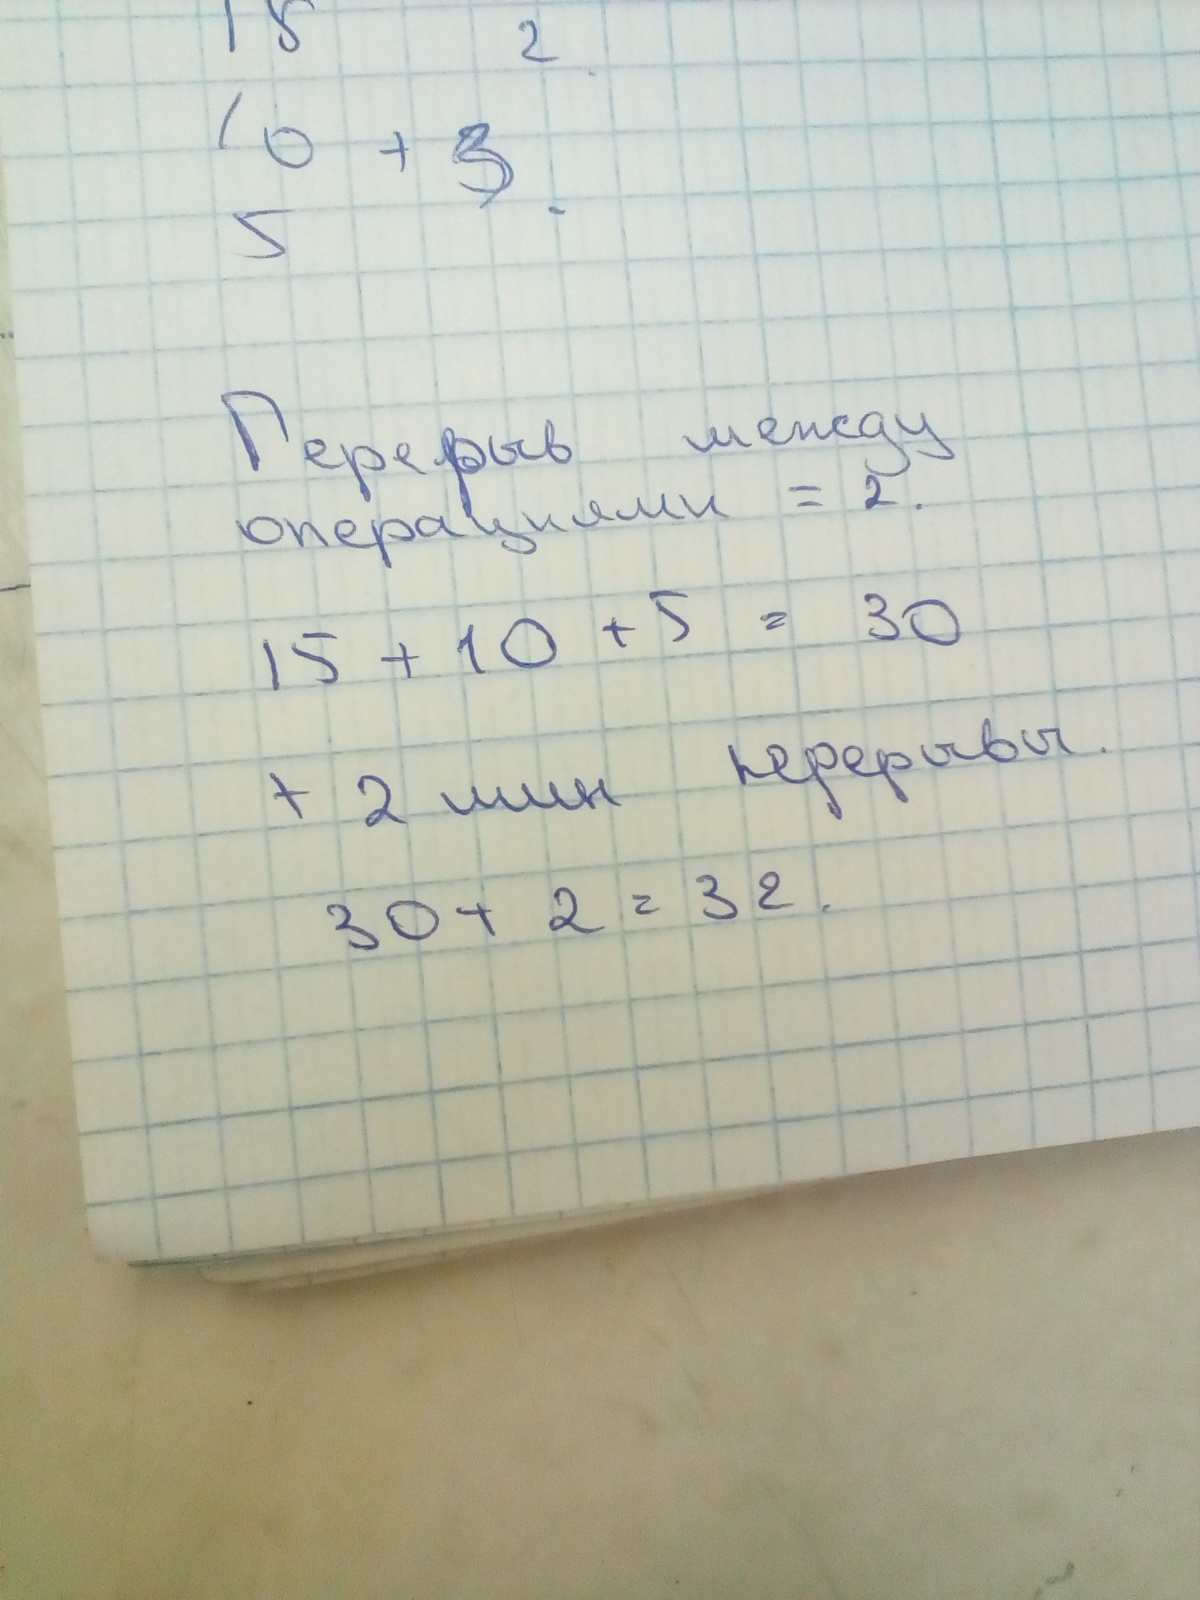 15 2.
10 + 3
5
Перерыв между
операциями = 2.
15 + 10 + 5 = 30
+ 2 мин перерывы.
30 + 2 = 32.